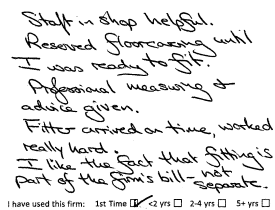 Staff in shop helpful.
Reserved floorcovering until
I was ready to fit.
Professional measuring &
advice given.
Fitter arrived on time, worked
really hard.
I like the fact that fitting is
part of the firm's bill - not
separate.
I have used this firm: 1st Time <2 yrs 2-4 yrs 5+ yrs